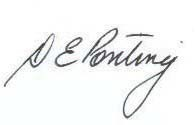 D E Ponting